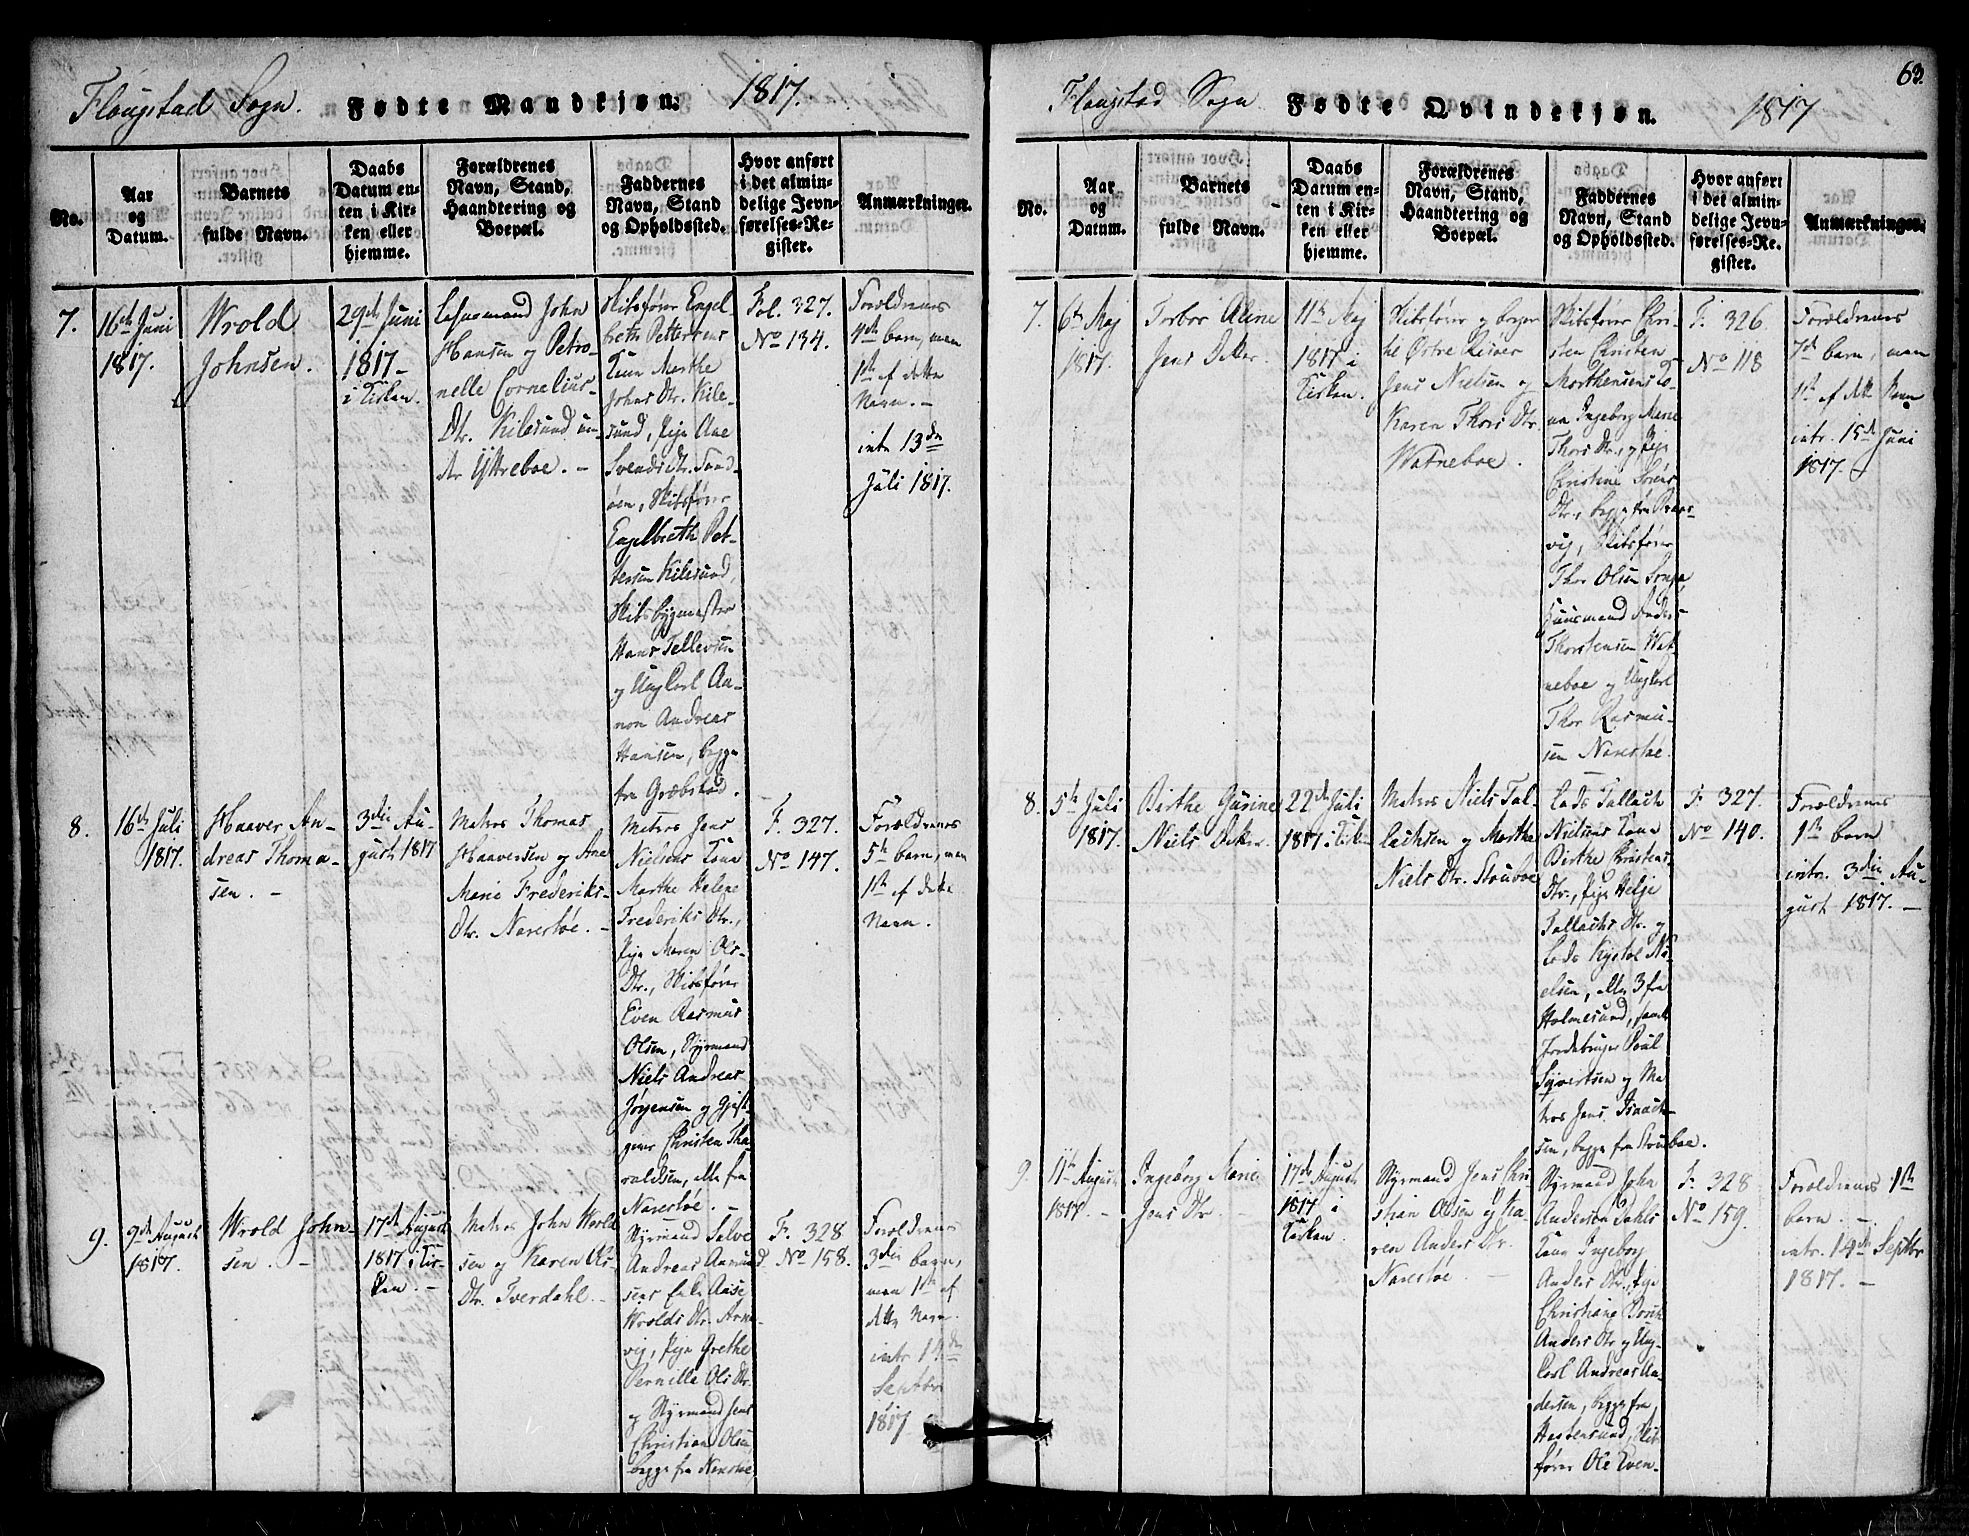 Flougstad Sogn. Fødte Mandkjøn. 1817.
No.
Aar
og
Datum.
Barnets
fulde Navn.
Daabs
Datum en-
ten i Kir-
ken eller
hjemme.
Forældrenes
Navn, Stand,
Haandtering og
Boepæl.
Faddernes
Navn, Stand
og Opholdssted.
Hvor anført
i det almin-
delige Jevn-
førelses-Re-
gister.
Anmærkninger.
7.
16de Juni
1817.
Wrold
Johnsen.
29de Juni
1817 -
i Kirken.
mand John
Hansen og Petro-
nelle Cornelius-
Dtr. Kilesund un-
dr. Yttreboe. -
Skibsfører Engel-
breth Pettersens
Kone Marthe
Johns Dtr. Kile-
sund, Pige Ane
Svends Dtr. Sand-
øen, Skibsfører
Engelbreth Pet-
tersen Kilesund,
Skibsbygmester
Hans Tellevsen
og Ungkarl An-
non Andreas
Hansen, begge
fra Græbstad.
Fol. 327.
No 134.
Forældrenes
4de barn, men
1ste af dette
Navn. -
intr. 13de
Juli 1817.
8.
16de Juli
1817.
Haaver An-
dreas Thoma-
sen. -
3die Au-
gust 1817
Matros Thomas
Haaversen og Ane
Marie Frederiks-
Dtr. Narestøe. -
Matros Jens
Nielsens Kone
Marthe Helene
Frederiks Dtr.,
Pige Maren Ols-
Dtr., Skibsfører
Even Rasmus
Olsen, Styrmand
Niels Andreas
Jørgensen og Gjest-
giver Christen Tha-
raldsen, alle fra
Narestøe. -
F. 327.
No 147.
Forældrenes
5te barn, men
1ste af dette
Navn.
9.
9de August
1817.
Wrold John-
sen. -
17de August
1817 i Kir-
ken. -
Matros John Wrold-
sen og Karen Ols-
Dtr. Tverdahl. -
Styrmand Salve
Andreas Aamund-
sens Aase
Wrolds Dtr. Arne-
vig, Pige Grethe
Pernille Ols Dtr.
og Styrmand Jens
Christian Olsen,
begge fra Narestøe
F. 328
No 158.
Forældrenes
3die barn,
men 1ste af
dette Navn.
intr. 14de
Septbr
1817
63.
Flougstad Sogn Fødte Qvindekjøn. 1817
No.
Aar
og
Datum.
Barnets
fulde Navn.
Daabs
Datum en-
ten i Kir-
ken eller
hjemme.
Forældrenes
Navn, Stand,
Haandtering og
Boepæl.
Faddernes
Navn, Stand
og Opholdssted.
Hvor anført
i det almin-
delige Jevn-
førelses-Re-
gister.
Anmærkninger.
7.
6te Maj
1817.
Torbor Aline
Jens Dtr.
11te Maj
1817 i
Kirken.
Skibsfører og borger
til Østre Riisøer
Jens Nielsen og
Karen Thors Dtr.
Watneboe.
Skibsfører Chri-
sten Christen
Morthensens Ko-
ne Ingeborg Marie
Thors Dtr., Pige
Christine Sørens
Dtr., begge fra
vig, Skibsfører
Thor Olsen Songe
Huusmand Anders
Thorstensen Wat-
neboe og Ungkarl
Thor Rasmu-
sen Narestøe.
F. 326.
No 118
Forældrenes
7de barn, men
1ste af dette Navn
intr. 15de Juni
1817.
8.
5te Juli
1817.
Birthe Gurine
Niels Dtr.
22de Juli
1817 i Kirken
Matros Niels Tal-
lachsen og Marthe
Niels Dtr. Stouboe
Lods Tallach
Nielsens Kone
Birthe Christens
Dtr., Pige Helje
Tallachs Dtr. og
Lods Ni-
elsen, alle 3 fra
Holmesund, samt
Jordebruger Poul
Syvertsen og Ma-
tros Jens Isaach-
sen, begge fra Stouboe.
F. 327.
No 140.
Forældrenes
1ste barn
intr. 3die Au-
gust 1817. -
9.
11te August
1817. -
Ingeborg Marie
Jens Dtr. -
17de August
1817 i
Kirken.
Styrmand Jens Chri-
stian Olsen og Ka-
ren Anders Dtr.
Narestøe. -
Styrmand John
Andersen Dahls
Kone Ingeborg
Anders Dtr., Pige
Christiane
Anders Dtr. og Ung-
karl Andreas An-
dersen, begge fra
Hestensund, Skibs-
fører Ole Even-
F. 328
No 159.
Forældrenes 1ste
barn. -
intr. 14de Septbr
1817. -